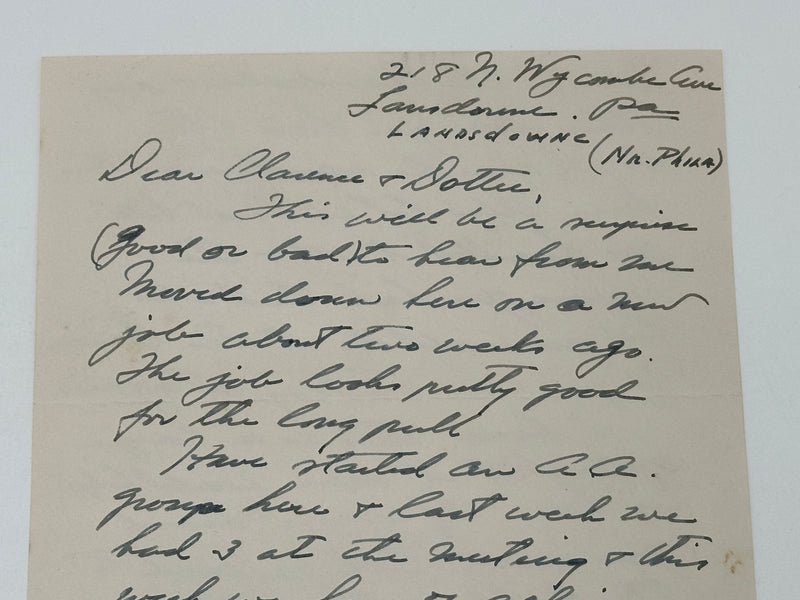 218 N. Wycombe Ave
Lansdowne. Pa
LANDSdOWNE
(NR. PHILA)
Dear Clarence & Dottie,
This will be a surprise
(good or bad) to hear from me
Moved down here on a new
job about two weeks ago.
The job looks pretty good
for the long pull
Have started an A A.
group here & last week we
had 3 at the meeting & this
week we